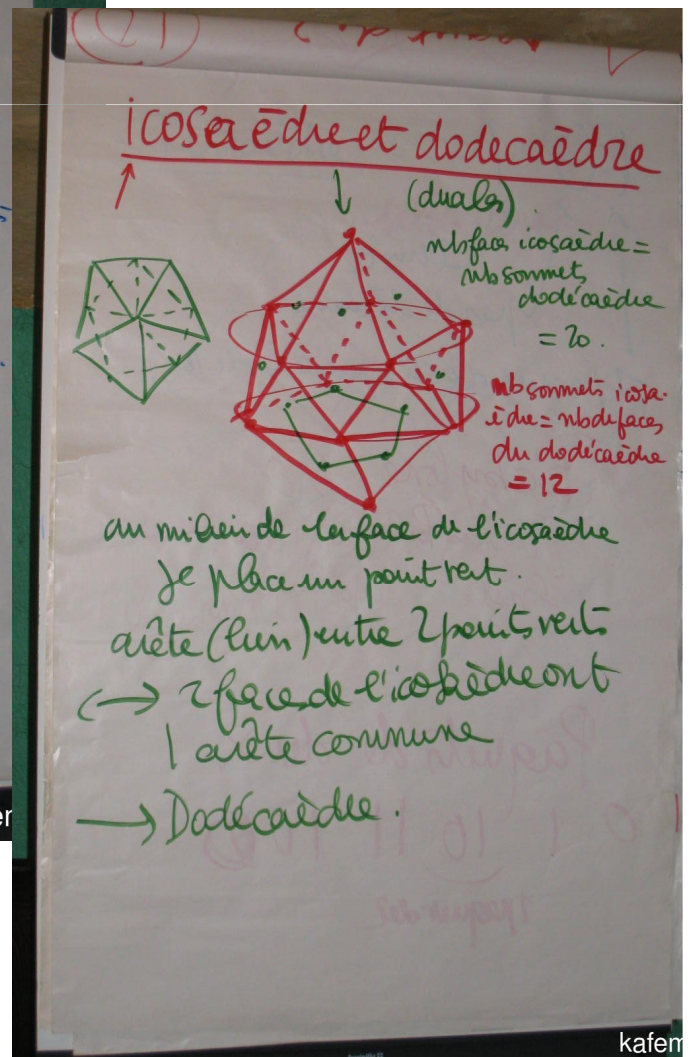 icosaèdre et dodecaèdre
(duales).
nb faces icosaèdre =
nb sommets
dodécaèdre
= 20.
nb sommets icosa-
èdre = nb de faces
du dodécaèdre
= 12
au milieu de la face de l'icosaèdre
je place un point vert.
arête (lien) entre 2 points verts
2 faces de l'icosaèdre ont
1 arête commune
Dodécaèdre.
kafem